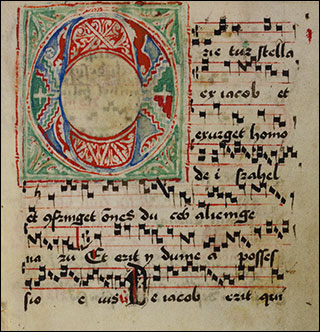 Orietur stella
ex iacob et
exurget homo
de israhel
et 9fringet o͞nes du ces alienige
na rū Et erit ÿ dume a posses
sio e ius De iacob erit qui